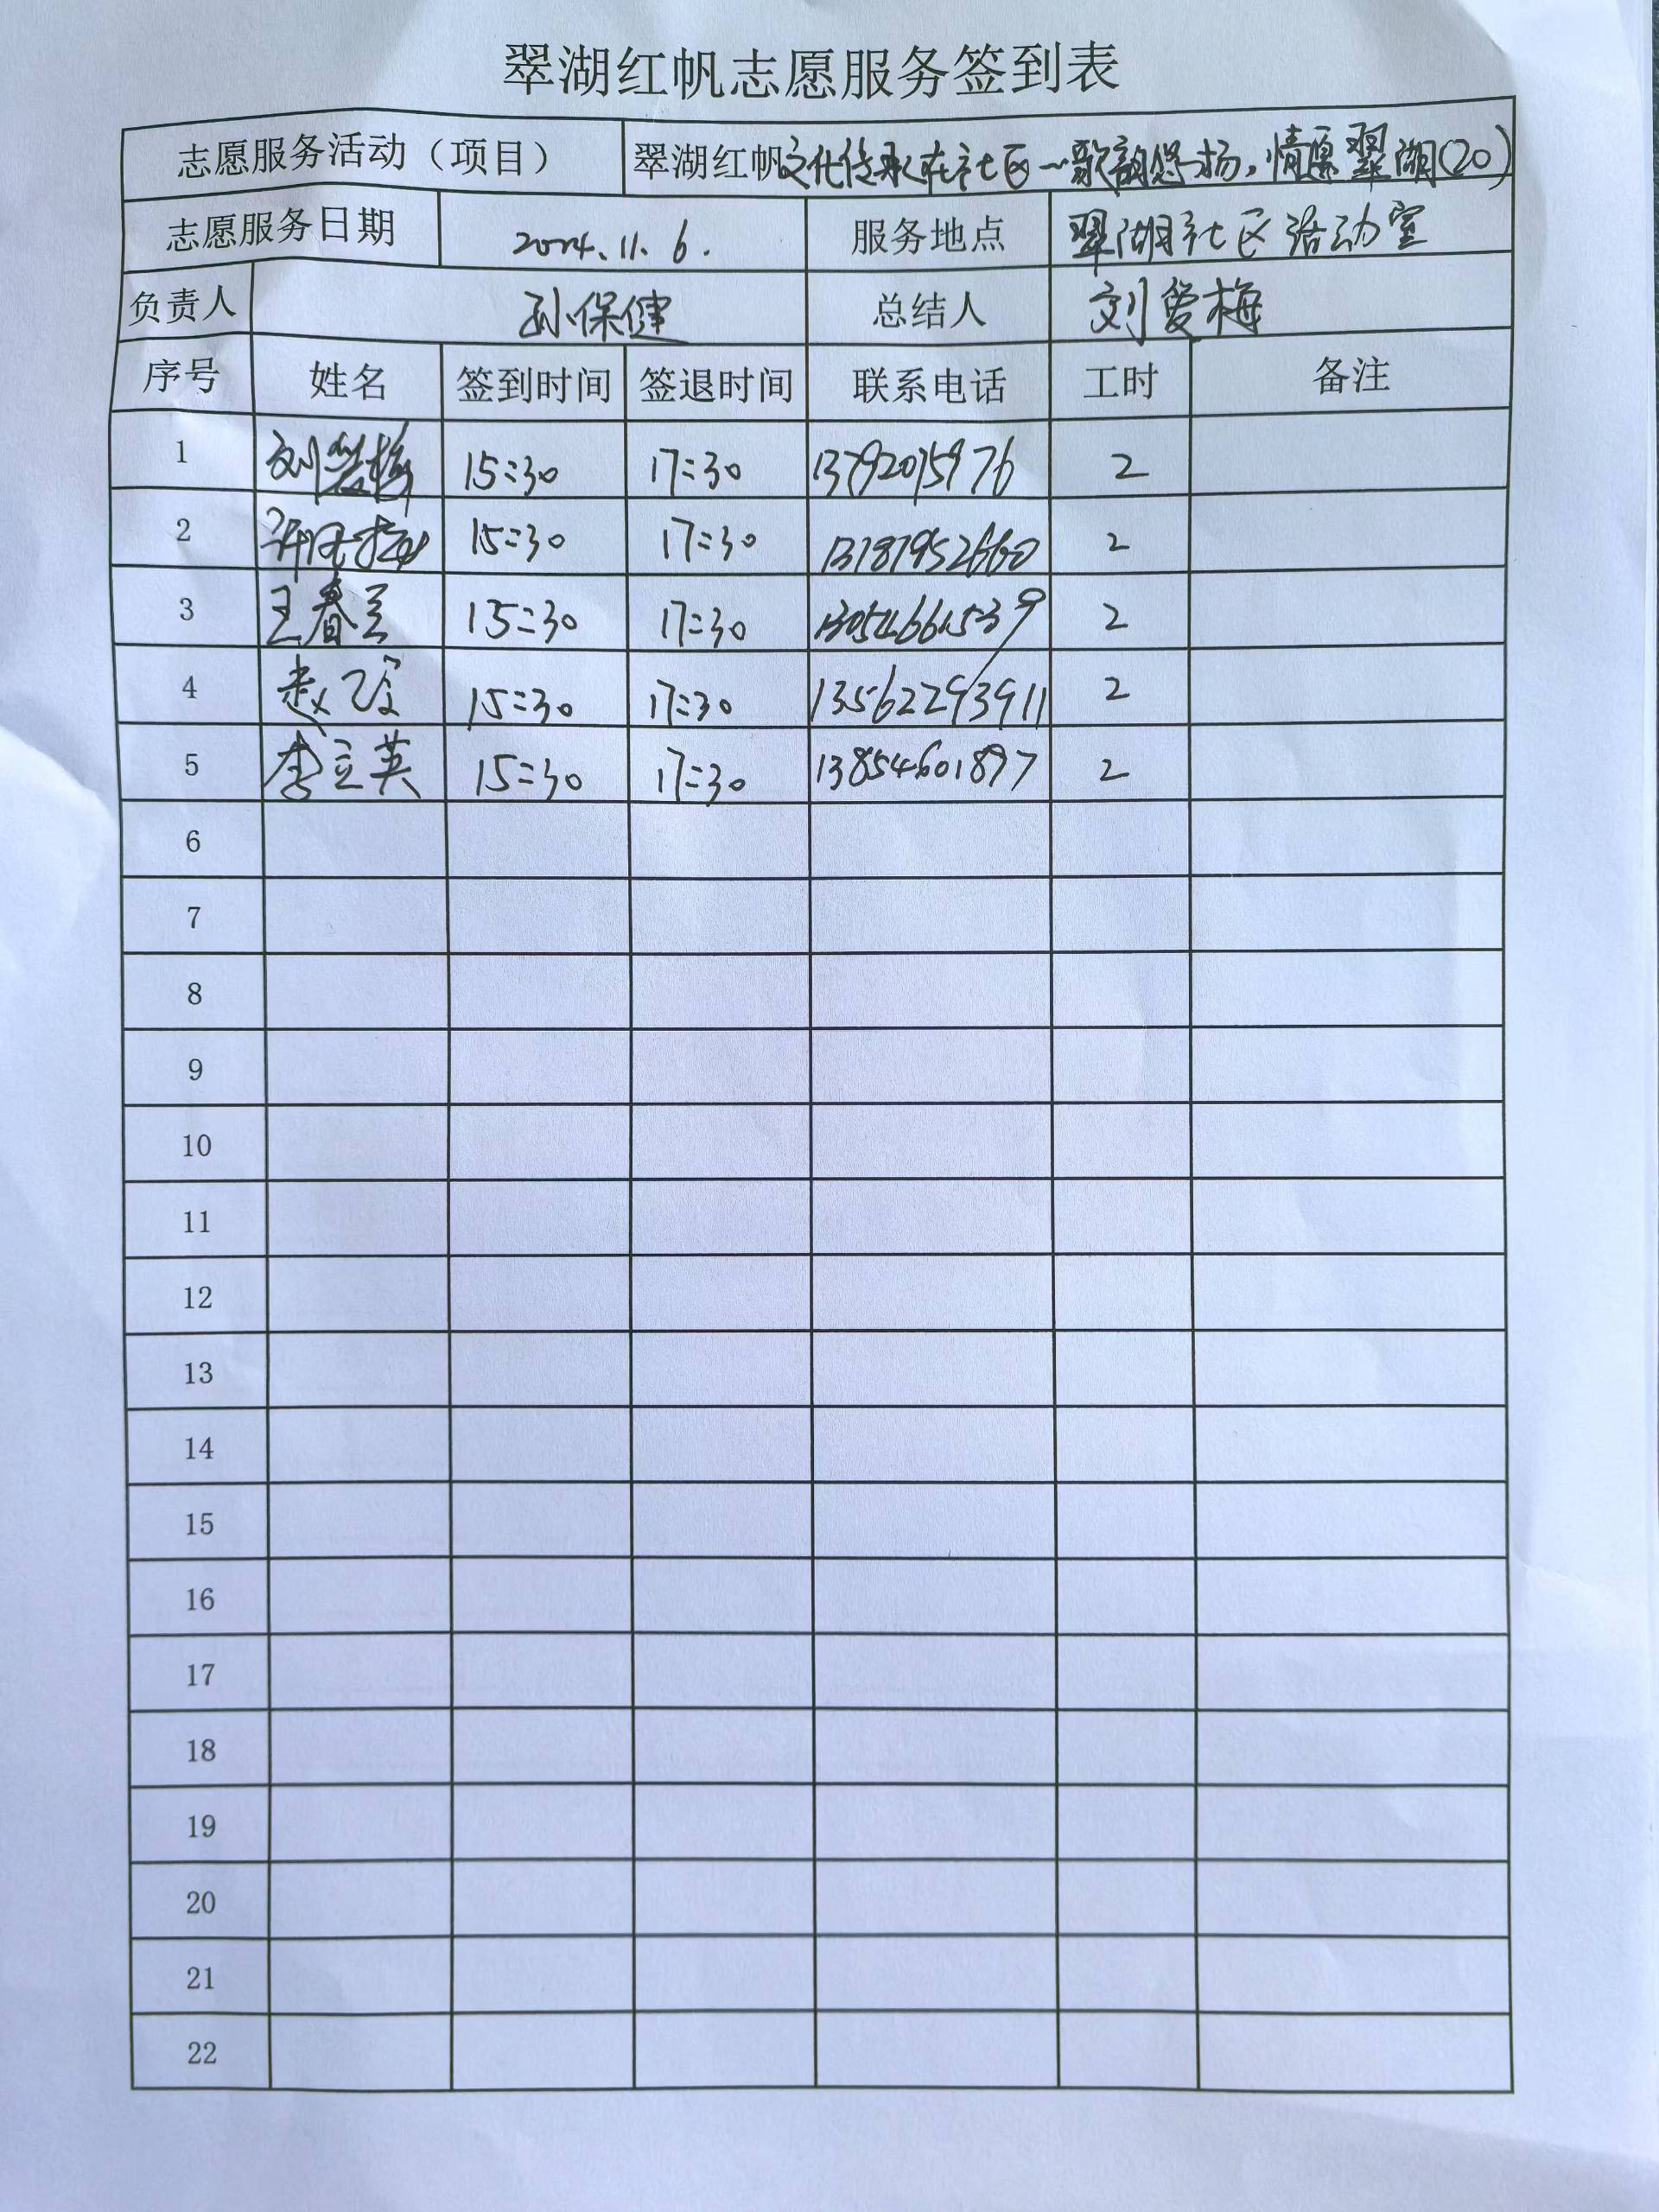 翠湖红帆志愿服务签到表
志愿服务活动（项目） 翠湖红帆文化传承在社区一歌韵悠扬，情愿翠湖(20)
志愿服务日期 2024.11.6. 服务地点 翠湖社区活动室
负责人 孙保健 总结人 刘爱梅
序号 姓名 签到时间 签退时间 联系电话 工时 备注
1 刘爱梅 15:30 17:30 13792075976 2
2 许 15:30 17:30 13181952660 2
3 王春兰 15:30 17:30 13054661539 2
4 赵 15:30 17:30 13562293911 2
5 李立英 15:30 17:30 13854601897 2
6
7
8
9
10
11
12
13
14
15
16
17
18
19
20
21
22